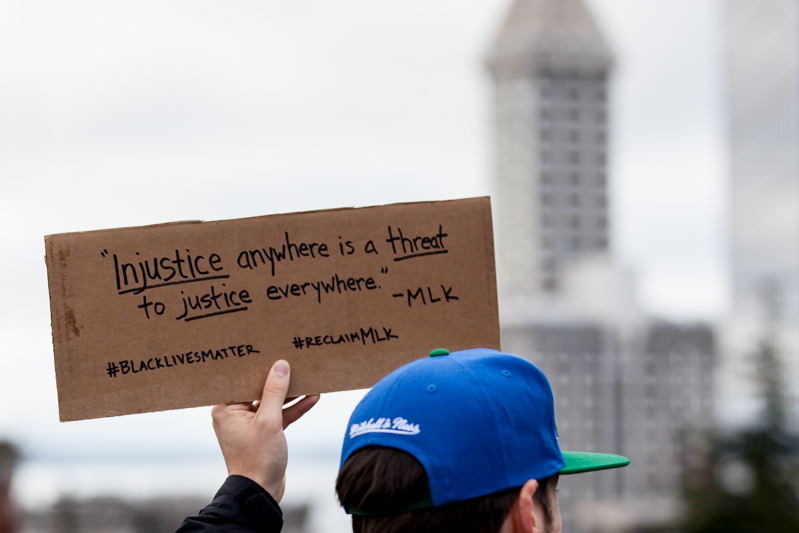 "Injustice anywhere is a threat
to justice everywhere."
-MLK
#BLACKLIVESMATTER #RECLAIMMLK
Mitchell & Ness